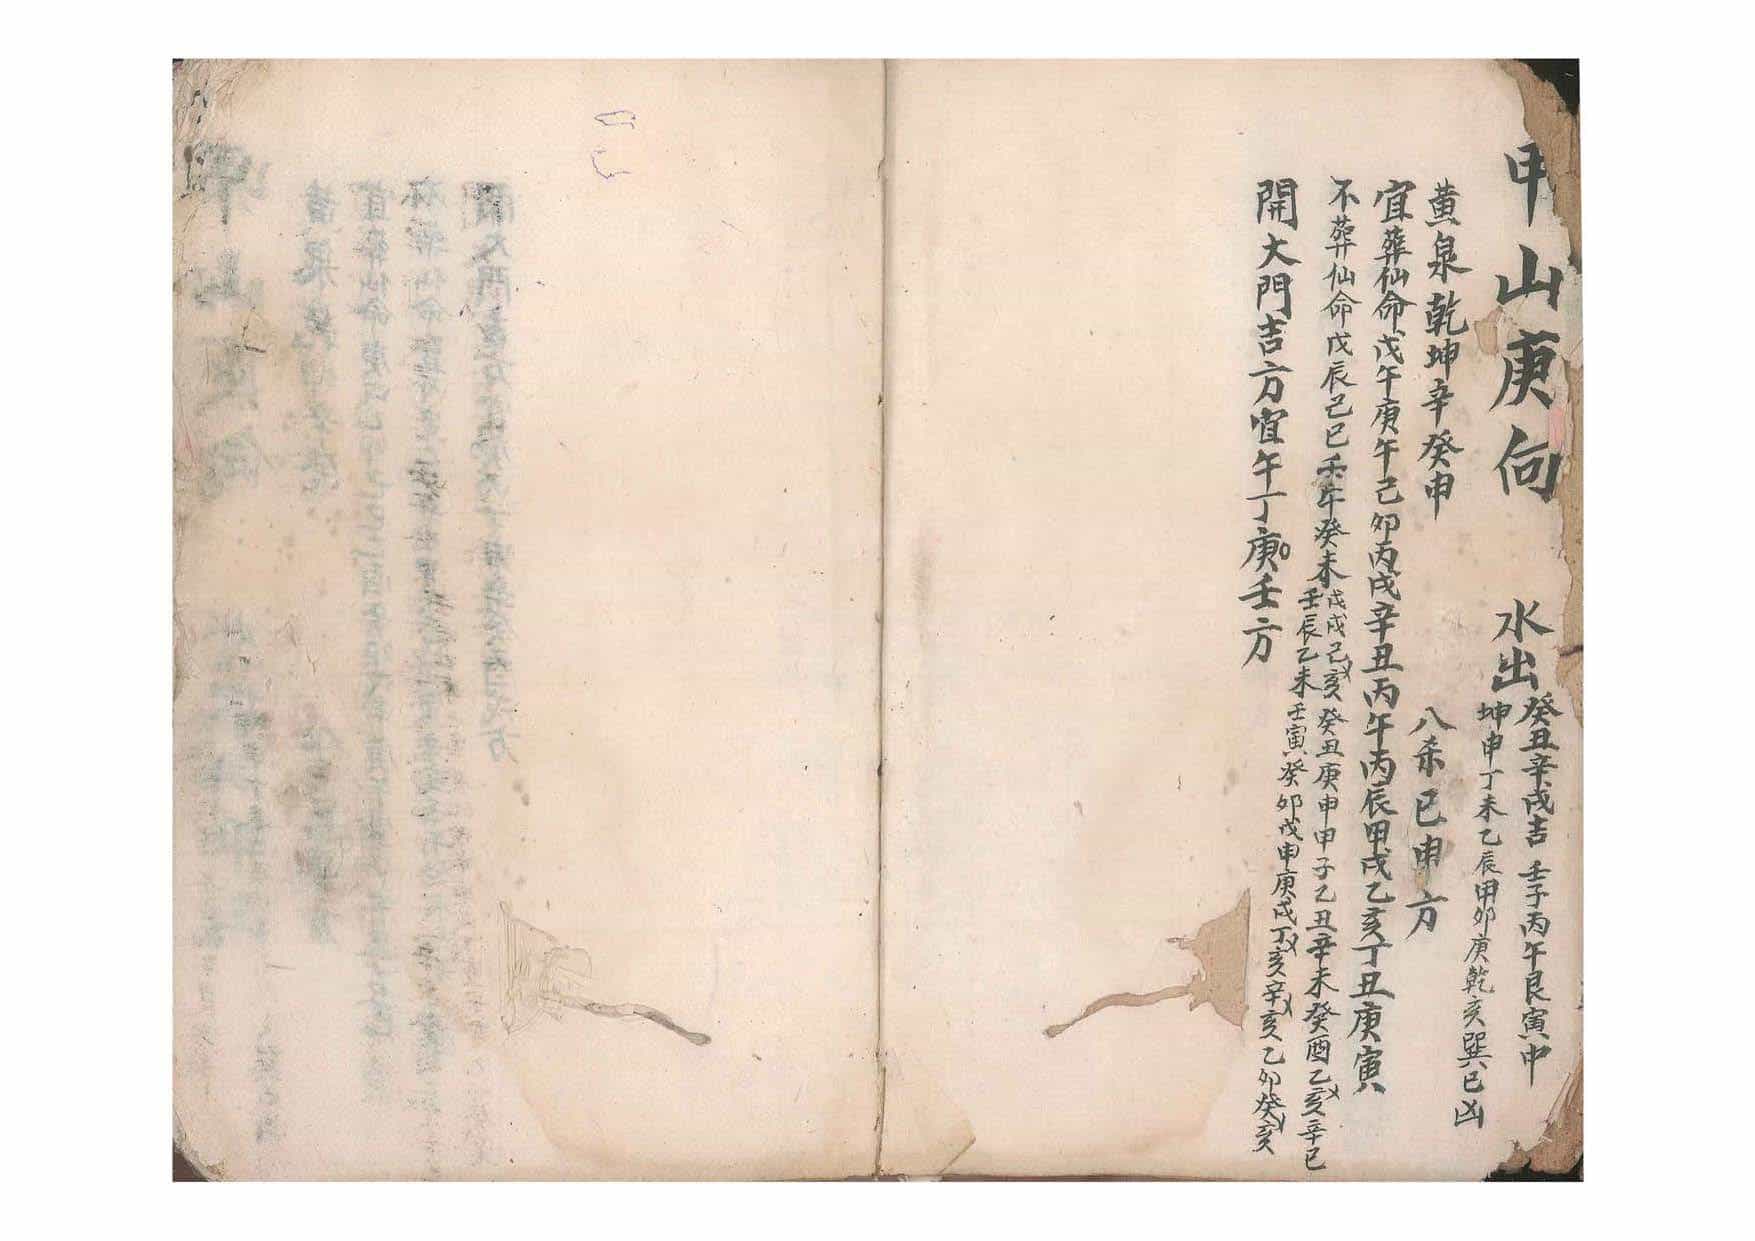 甲山庚向　水出
癸丑辛戌吉　壬子丙午艮寅申
坤申丁未乙辰甲卯庚乾亥巽巳凶
黃泉乾坤辛癸申　八杀巳申方
宜葬仙命戊午庚午己卯丙戌辛丑丙午丙辰甲戌乙亥丁丑庚寅
不葬仙命戊辰己巳壬午癸未
戊戌己亥癸丑庚申甲子乙丑辛未癸酉乙亥辛巳
壬辰乙未壬寅癸卯戊申庚戌丁亥辛亥乙卯癸亥
開大門吉方宜午丁庚壬方